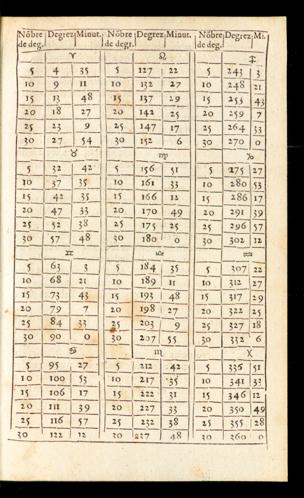 Nõbre Degrez Minut. Nõbre Degrez Minut. Nõbre Degrez Mi.
de deg. de deg. de deg.
♈ ♌ ♐
5 4 35 5 127 22 5 243 3
10 9 11 10 132 27 10 248 21
15 13 48 15 137 29 15 253 43
20 18 27 20 142 25 20 259 7
25 23 9 25 147 17 25 264 33
30 27 54 30 152 6 30 270 0
♉ ♍ ♑
5 32 42 5 156 51 5 275 27
10 37 35 10 161 33 10 280 53
15 42 35 15 166 12 15 286 17
20 47 33 20 170 49 20 291 39
25 52 38 25 175 25 25 296 57
30 57 48 30 180 0 30 302 12
♊ ♎ ♒
5 63 3 5 184 35 5 307 22
10 68 21 10 189 11 10 312 27
15 73 43 15 193 48 15 317 29
20 79 7 20 198 27 20 322 25
25 84 33 25 203 9 25 327 18
30 90 0 30 207 55 30 332 6
♋ ♏ ♓
5 95 27 5 212 42 5 336 51
10 100 53 10 217 35 10 341 33
15 106 17 15 222 31 15 346 12
20 111 39 20 227 33 20 350 49
25 116 57 25 232 38 25 355 28
30 122 12 30 237 48 30 360 0